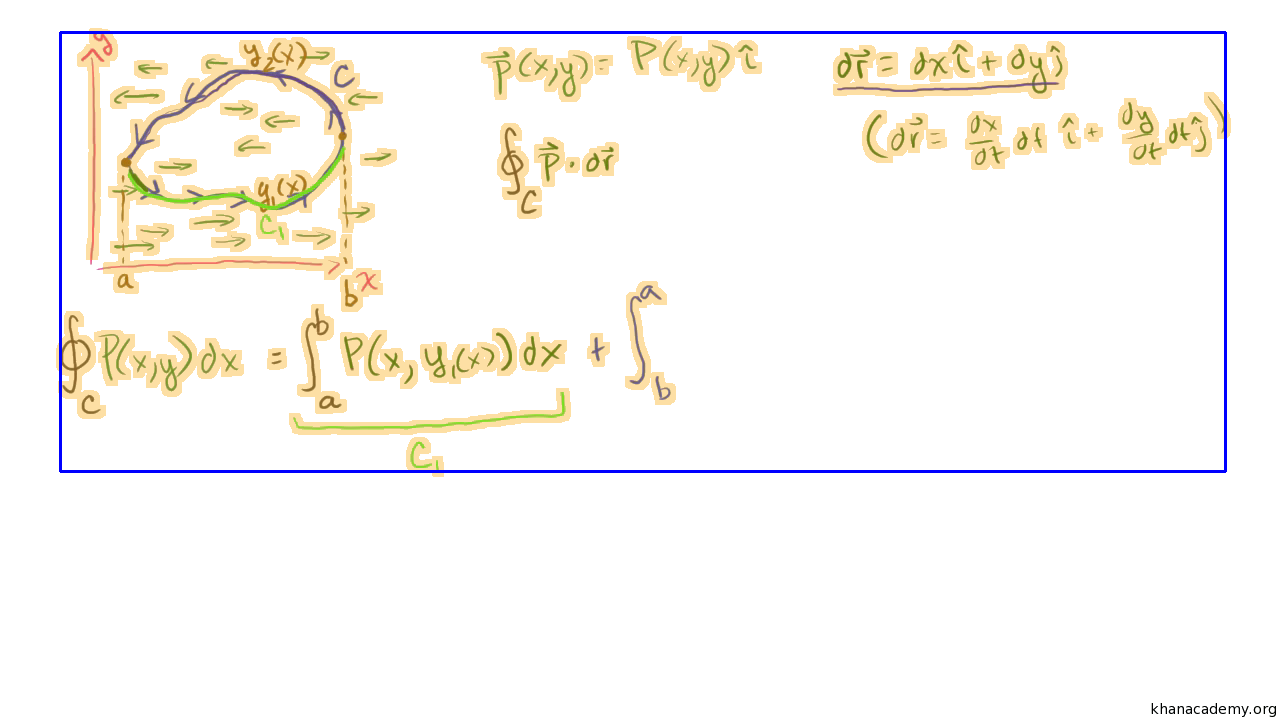 y
y₂(x)
C
y₁(x)
C₁
a
b
x
P⃗(x,y) = P(x,y) î
dr⃗ = dx î + dy ĵ
(dr⃗ = dx/dt dt î + dy/dt dt ĵ)
∮_C P⃗ · dr⃗
∮_C P(x,y) dx = ∫_a^b P(x, y₁(x)) dx + ∫_b^a
C₁
khanacademy.org